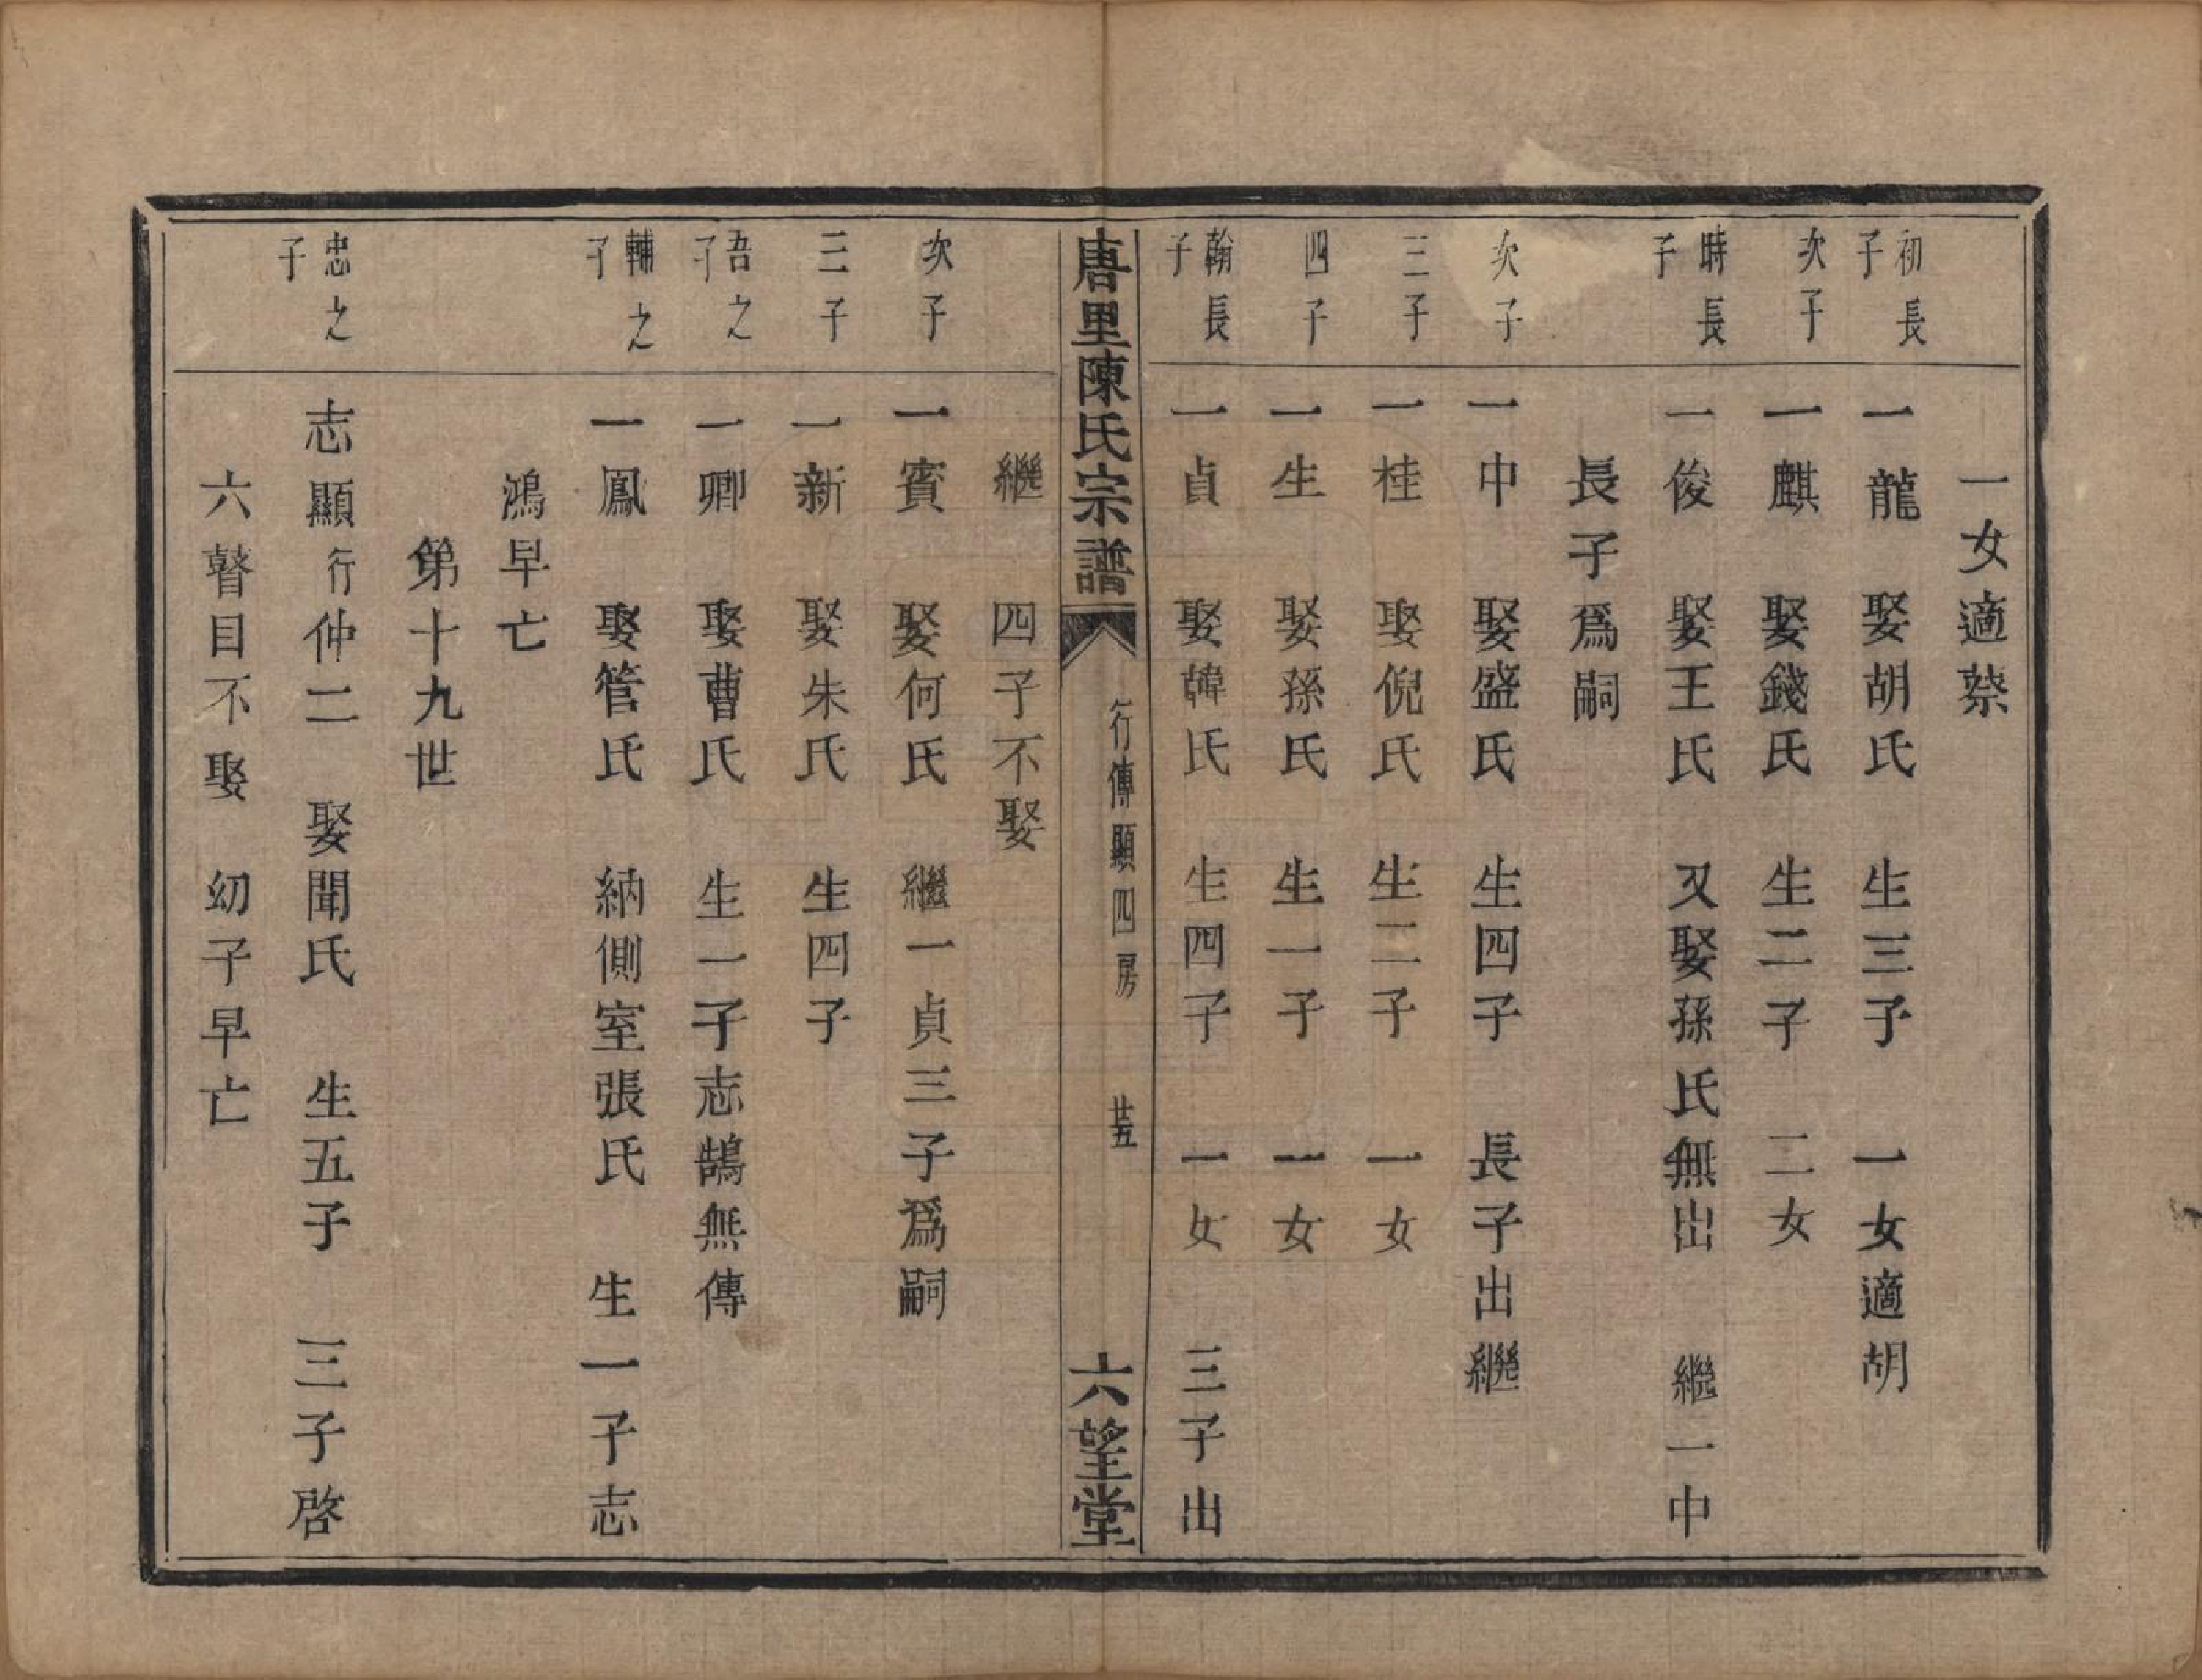 一女適蔡
初長子 一龍 娶胡氏 生三子 一女適胡
次子 一麒 娶錢氏 生二子 二女
時長子 一俊 娶王氏 又娶孫氏無出 繼一中
長子爲嗣
次子 一中 娶盛氏 生四子 長子出繼
三子 一桂 娶倪氏 生二子 一女
四子 一生 娶孫氏 生一子 一女
翰長子 一貞 娶韓氏 生四子 一女 三子出
唐里陳氏宗譜 行傳顯四房 廿五 六望堂
繼 四子不娶
次子 一賓 娶何氏 繼一貞三子爲嗣
三子 一新 娶朱氏 生四子
吾之子 一卿 娶曹氏 生一子志鵠無傳
輔之子 一鳳 娶管氏 納側室張氏 生一子志
鴻早亡
第十九世
忠之子 志顯行仲二 娶聞氏 生五子 三子啓
六瞽目不娶 幼子早亡